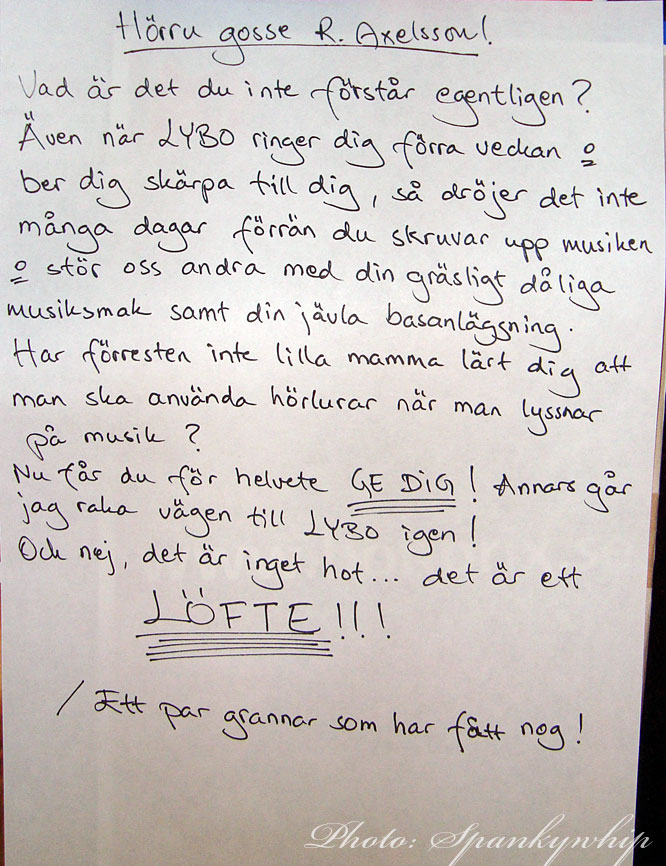 Hörru gosse R. Axelsson!
Vad är det du inte förstår egentligen?
Även när LYBO ringer dig förra veckan o
ber dig skärpa till dig, så dröjer det inte
många dagar förrän du skruvar upp musiken
o stör oss andra med din gräsligt dåliga
musiksmak samt din jävla basanläggsning.
Har förresten inte lilla mamma lärt dig att
man ska använda hörlurar när man lyssnar
på musik?
Nu får du för helvete GE DIG! Annars går
jag raka vägen till LYBO igen!
Och nej, det är inget hot... det är ett
LÖFTE!!!
/Ett par grannar som har fått nog!
Photo: Spankywhip